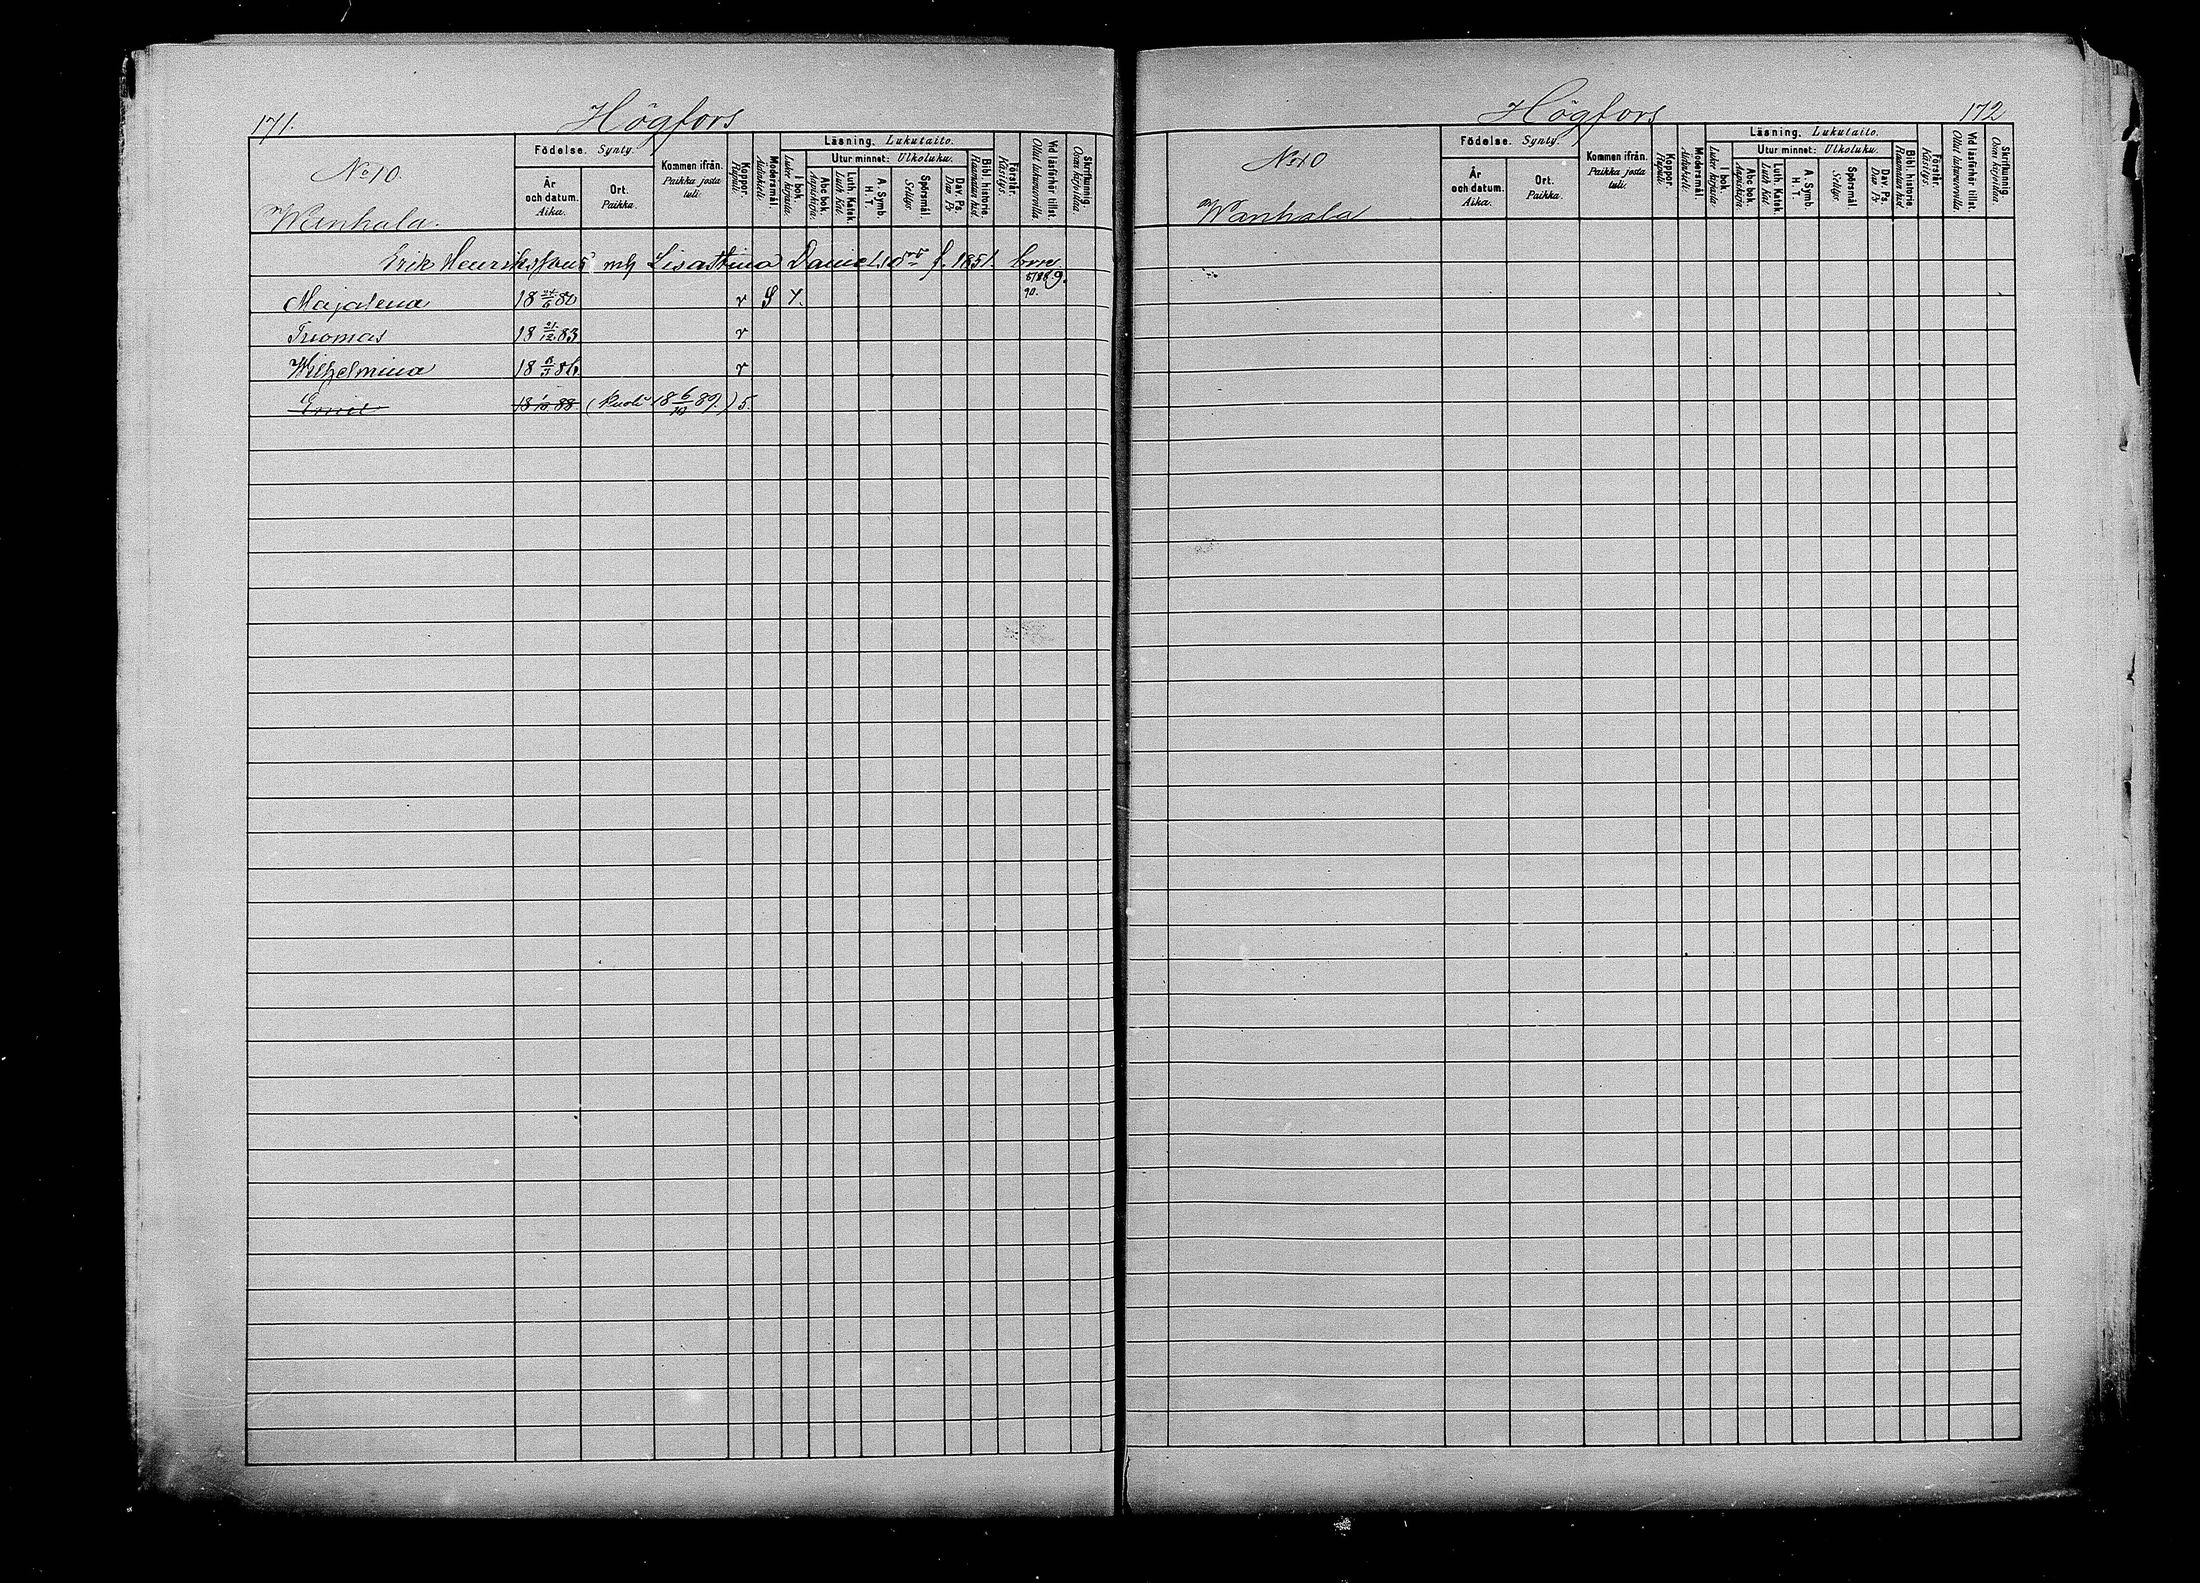 171. Högfors
No 10.
Wanhala.
Födelse. Synty.
År och datum. Aika.
Ort. Paikka.
Kommen ifrån. Paikka josta tuli.
Koppor. Rupuli.
Modersmål. Äidinkieli.
Läsning. Lukutaito.
I bok. Lukee kirjasta.
Utur minnet: Ulkoluku.
Abc bok. Aapiskirja.
Luth. Katek. Luth. Kat.
A. Symb. H. T.
Spörsmål. Selitys.
Dav. Ps. Dav. Ps.
Bibl. historie. Raamatun hist.
Förstår. Käsitys.
Vid läsförhör tillst. Ollut lukuluvuilla
Skrifkunnig. Osaa kirjoittaa
Erik Henrikssons mh Lisastina f. 1851. brn
Majalena 18 80 r S 7. 90.
Tuomas 18 21/12 83 r
Wilhelmina 18 86 r
Emil 18 88. (kuoli 18 6/12 89.) 5.
Högfors 172
No 10
Wanhala
Födelse. Synty.
År och datum. Aika.
Ort. Paikka.
Kommen ifrån. Paikka josta tuli.
Koppor. Rupuli.
Modersmål. Äidinkieli.
Läsning. Lukutaito.
I bok. Lukee kirjasta.
Utur minnet: Ulkoluku.
Abc bok. Aapiskirja.
Luth. Katek. Luth. Kat
A. Symb. H. T.
Spörsmål. Selitys.
Dav. Ps. Dav. Ps
Bibl. historie. Raamatun hist.
Förstår. Käsitys.
Vid läsförhör tillst.
Skrifkunnig. Osaa kirjoittaa